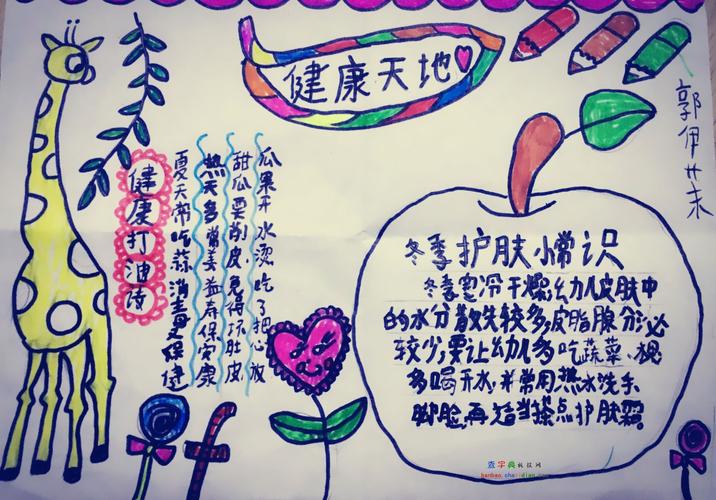 健康天地
郭伊茉
健康打油诗
夏天常吃蒜消毒又保健
热天多常姜益寿保安康
甜瓜要削皮免得坏肚皮
瓜果开水烫吃了把心放
冬季护肤小常识
冬季寒冷干燥幼儿皮肤中
的水分散失较多,皮脂腺分泌
较少,要让幼儿多吃蔬菜、
多喝开水,并常用热水洗手、
脚脸,再适当搽点护肤霜
查字典板报网
banbao.chazidian.com